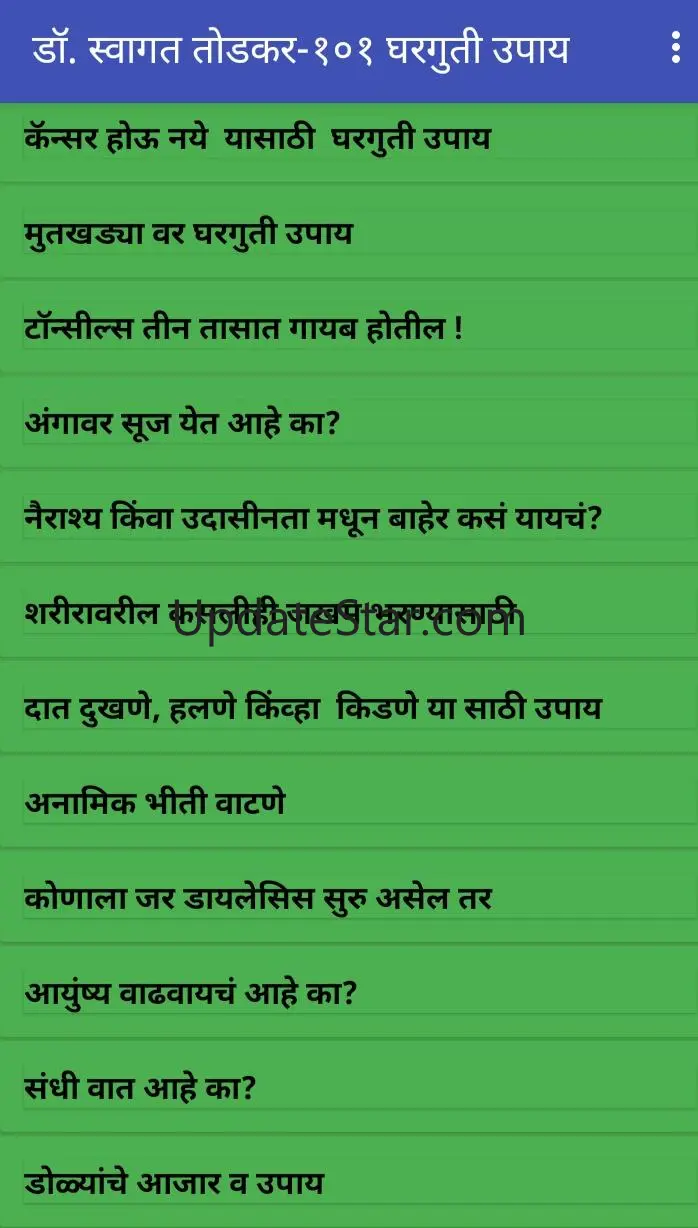 डॉ. स्वागत तोडकर-१०१ घरगुती उपाय
कॅन्सर होऊ नये यासाठी घरगुती उपाय
मुतखड्या वर घरगुती उपाय
टॉन्सील्स तीन तासात गायब होतील !
अंगावर सूज येत आहे का?
नैराश्य किंवा उदासीनता मधून बाहेर कसं यायचं?
शरीरावरील कसलीही जखम भरण्यासाठी
UpdateStar.com
दात दुखणे, हलणे किंव्हा किडणे या साठी उपाय
अनामिक भीती वाटणे
कोणाला जर डायलेसिस सुरु असेल तर
आयुंष्य वाढवायचं आहे का?
संधी वात आहे का?
डोळ्यांचे आजार व उपाय